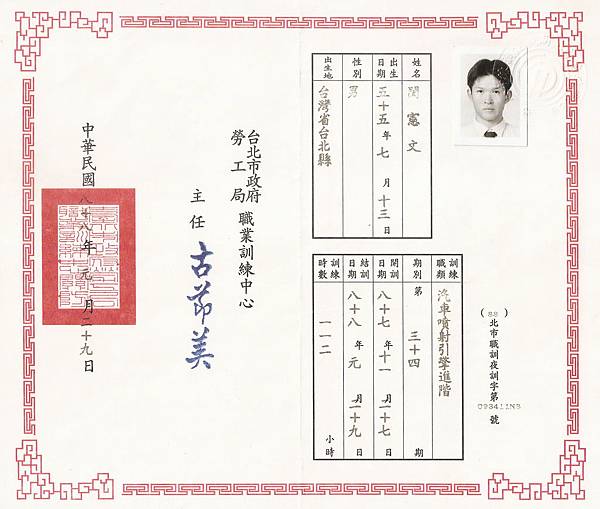 (88)北市職訓夜訓字第093411NS號
姓名 閔憲文
出生日期 五十五年七月十三日
性別 男
出生地 台灣省台北縣
訓練職類 汽車噴射引擎進階
期別 第三十四期
開訓日期 八十七年十一月二十七日
結訓日期 八十八年元月二十九日
訓練時數 一一二小時
台北市政府勞工局職業訓練中心
主任 古節美
中華民國八十八年元月二十九日